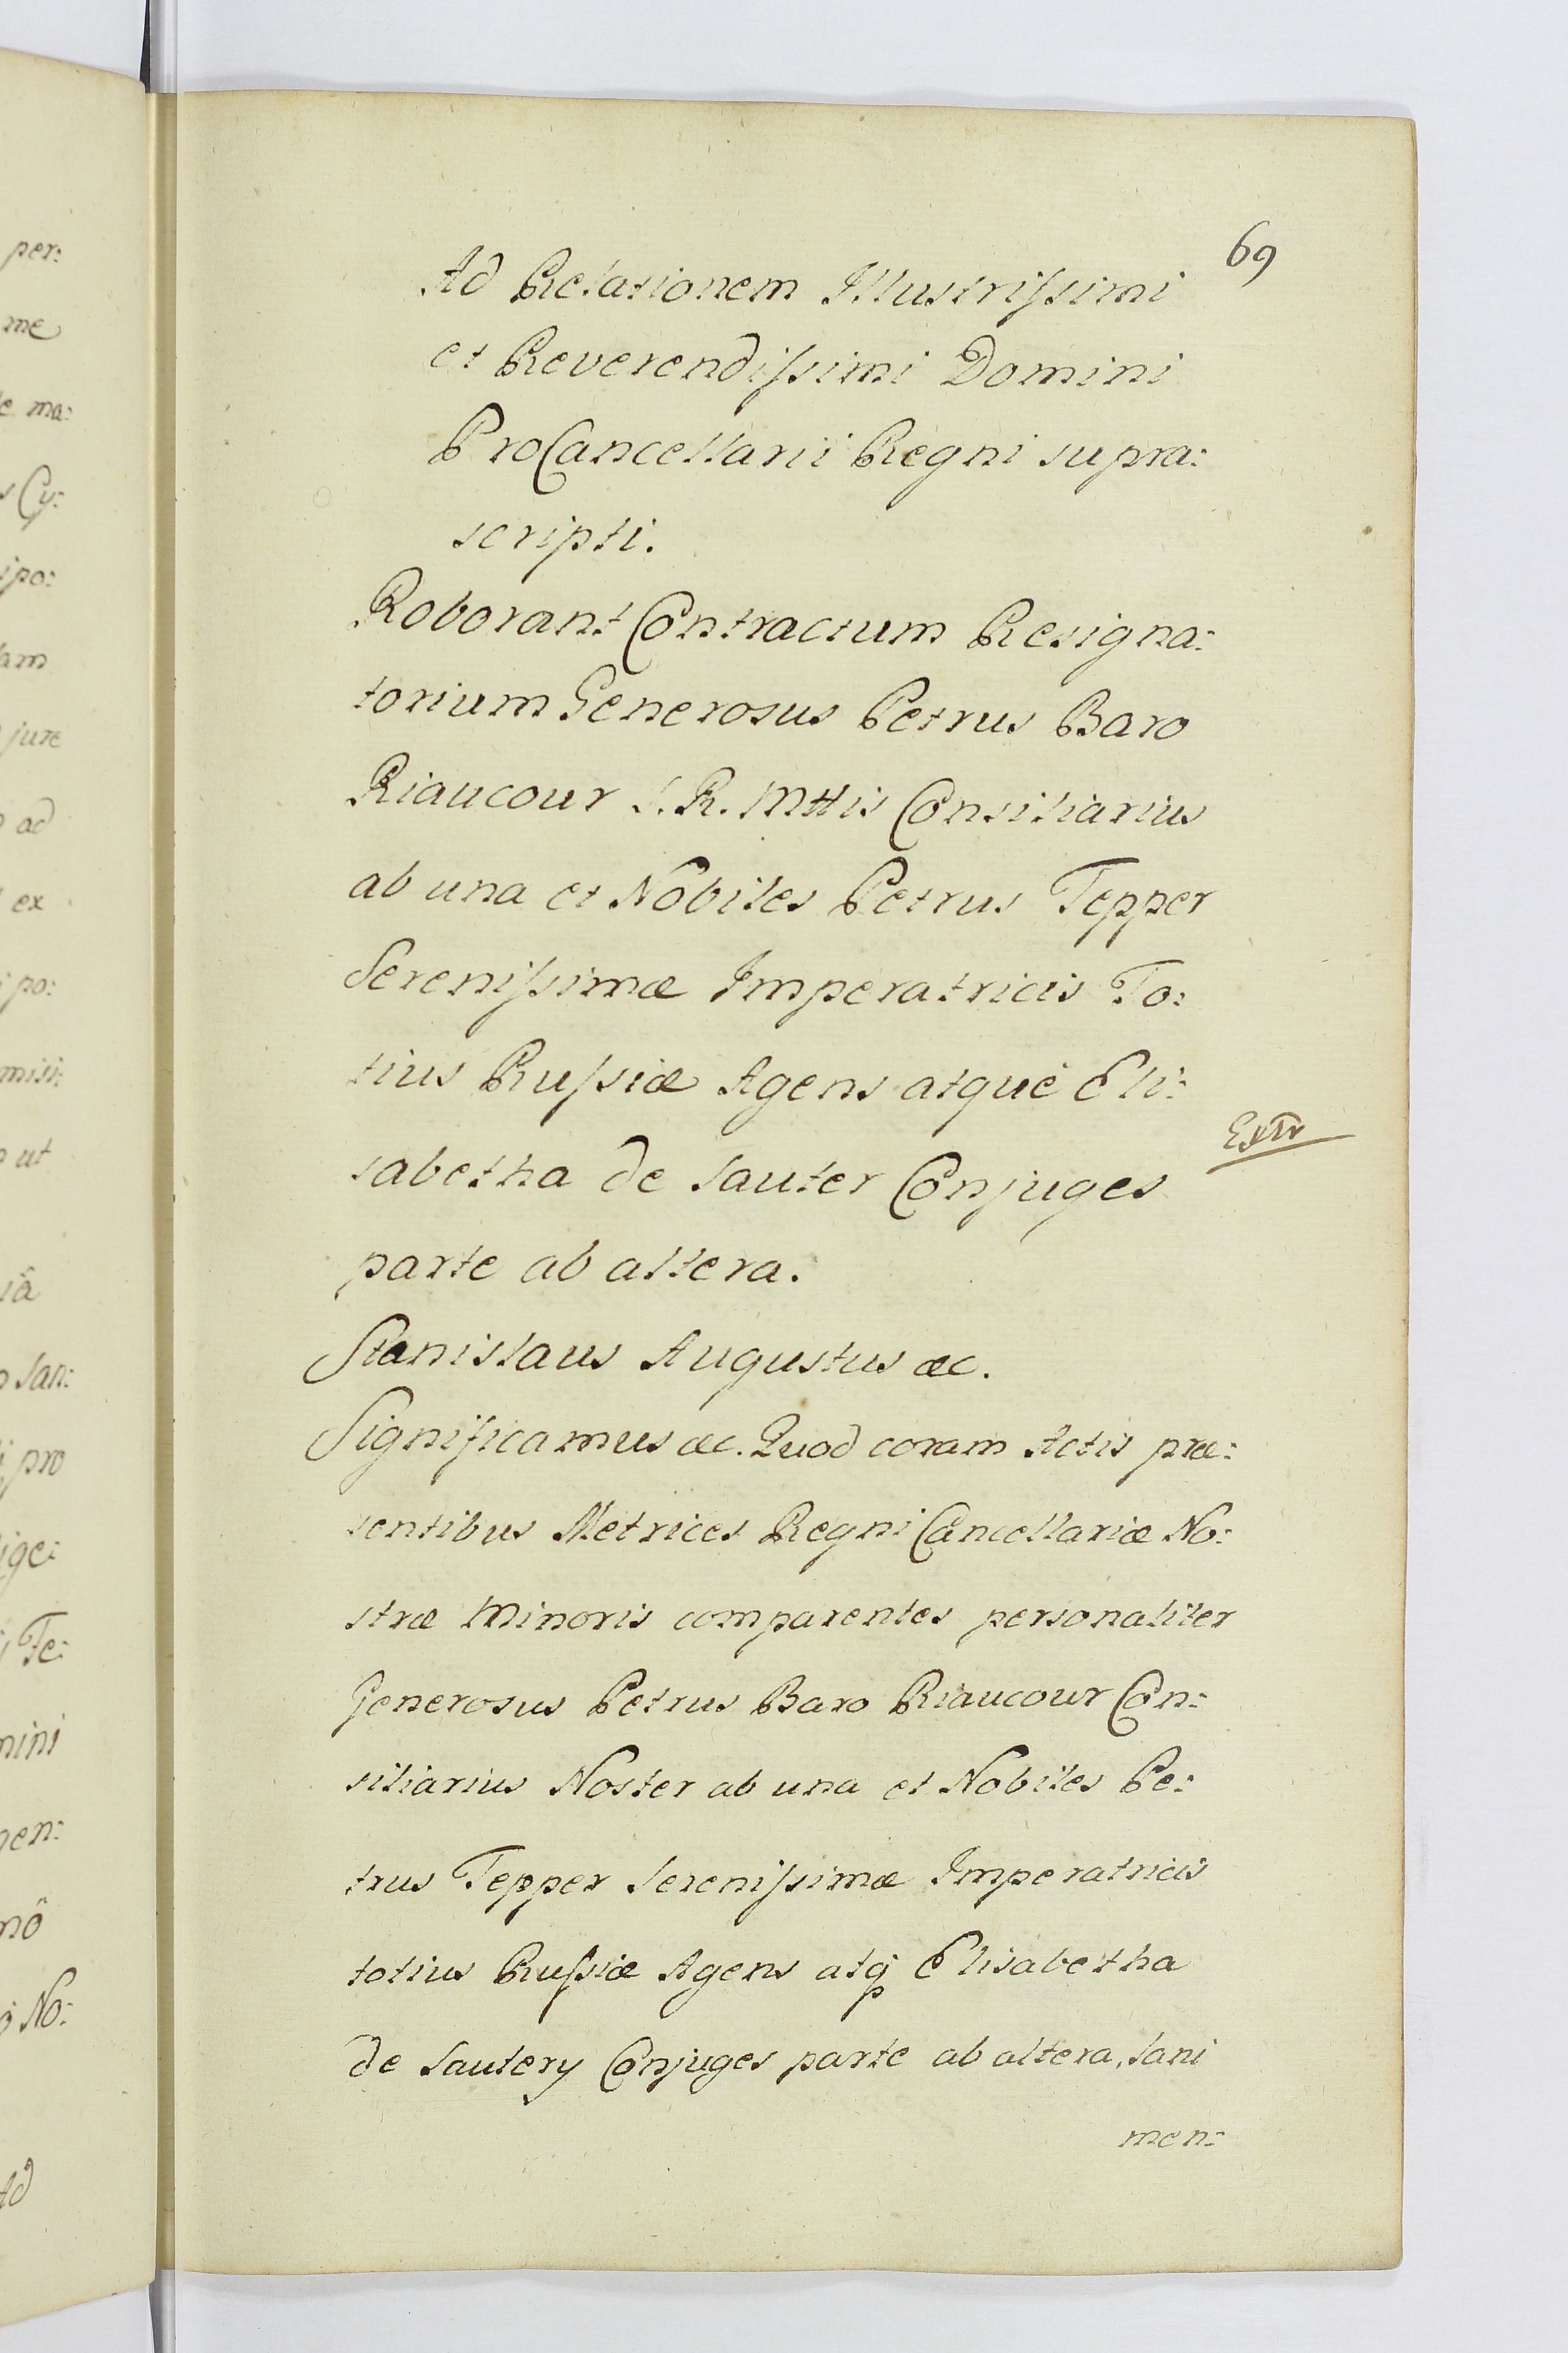 69
Ad Relationem Illustrissimi
et Reverendissimi Domini
ProCancellarii Regni supra:
scripti.
Roborant Contractum Resigna:
torium Generosus Petrus Baro
Riaucour S. R. Mttis Consiliarius
ab una et Nobiles Petrus Tepper
Serenissimæ Imperatricis To:
tius Russiæ Agens atque Eli:
sabetha de Sauter Conjuges
Extr
parte ab altera.
Stanislaus Augustus &c.
Significamus &c. Quod coram Actis præ:
sentibus Metrices Regni Cancellariæ No:
stræ Minoris comparentes personaliter
Generosus Petrus Baro Riaucour Con:
siliarius Noster ab una et Nobiles Pe:
trus Tepper Serenissimæ Imperatricis
totius Russiæ Agens atq Elisabetha
de Sautery Conjuges parte ab altera, sani
men:
per:
me
e ma:
s Cy:
ipo:
am
jure
ad
ex
po:
misi:
ut
iâ
San:
i pro
ige:
Te:
mini
nen:
nô
No:
Ad